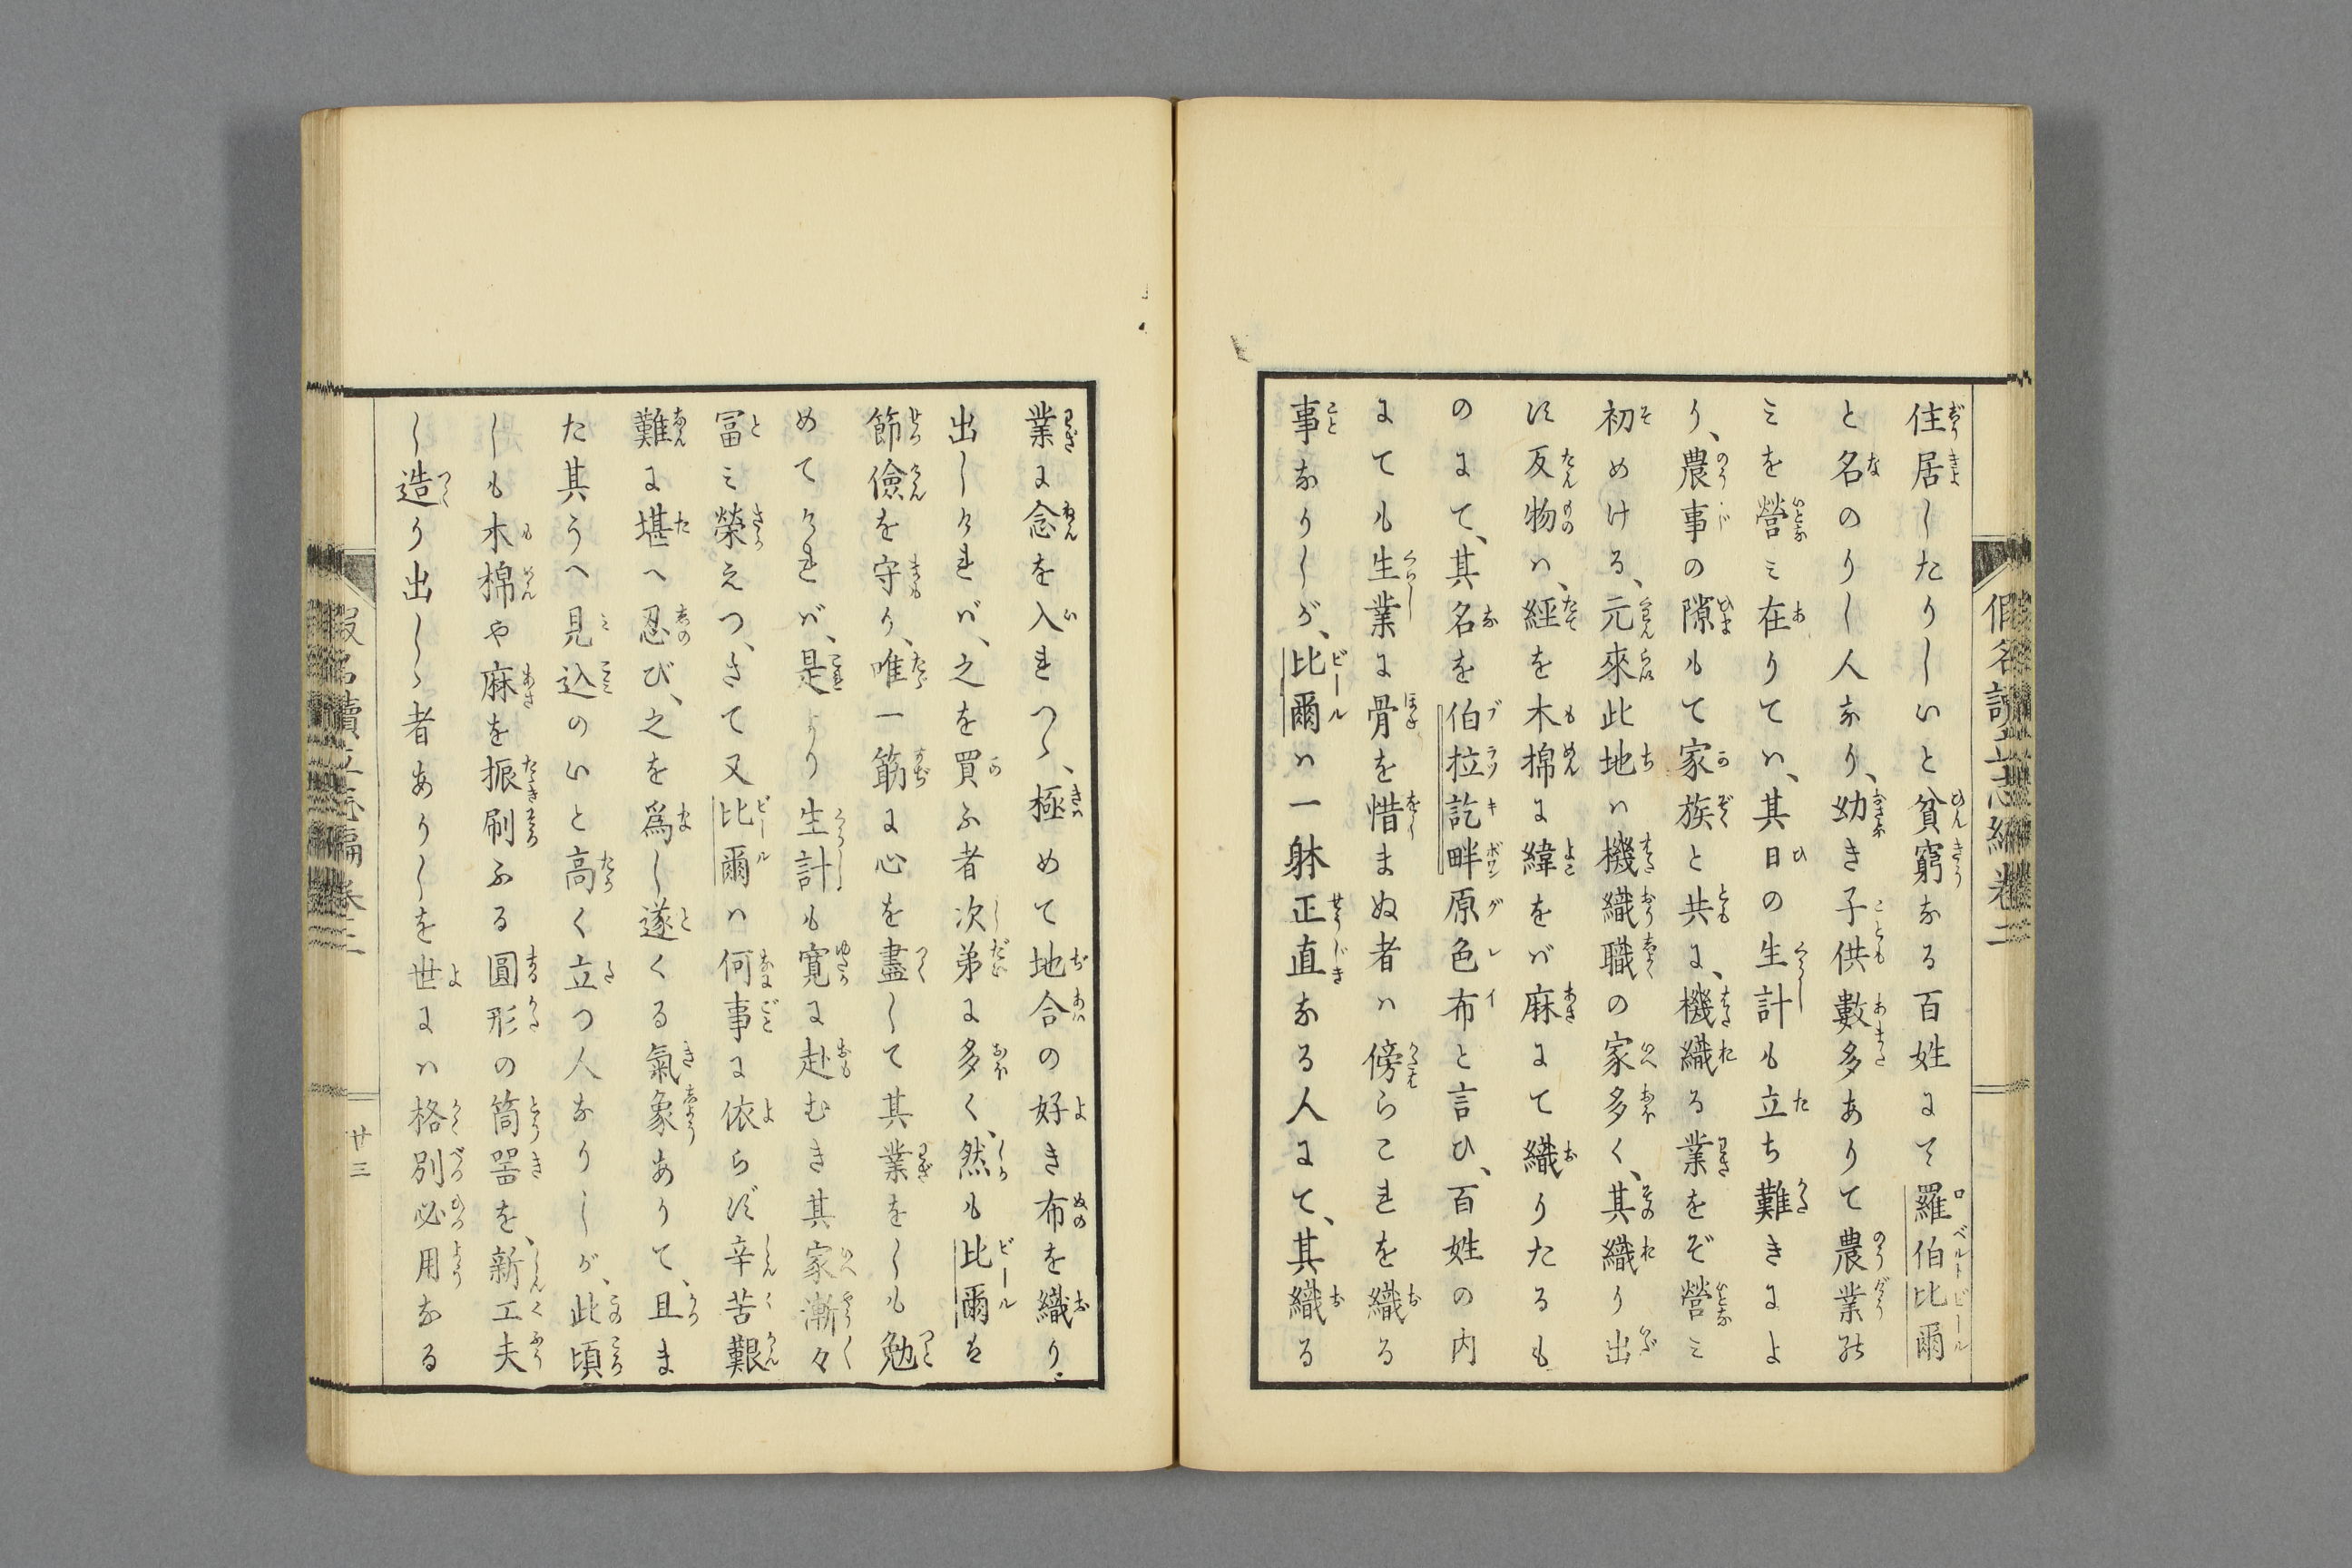 住居したりしいと貧窮なる百姓にて羅伯比爾
と名のりし人なり、幼き子供數多ありて農業の
ミを營ミ在りてハ、其日の生計も立ち難きによ
り、農事の隙もて家族と共に、機織る業をぞ營ミ
初めける、元來此地ハ機織職の家多く、其織り出
す反物ハ、經を木棉に緯をバ麻にて織りたるも
のにて、其名を伯拉訖畔原色布と言ひ、百姓の内
にても生業に骨を惜まぬ者ハ傍らこれを織る
事なりしが、比爾ハ一躰正直なる人にて、其織る
業に念を入れつゝ、極めて地合の好き布を織り
出しけれバ、之を買ふ者次弟に多く、然も比爾は
節儉を守り、唯一筋に心を盡して其業をしも勉
めてけれバ、是より生計も寛に赴むき其家漸々
冨ミ榮えつ、さて又比爾ハ何事に依らず辛苦艱
難に堪へ忍び、之を爲し遂くる氣象ありて、且ま
た其うへ見込のいと高く立つ人なりしが、此頃
しも木棉や麻を振刷ふる圓形の筒噐を、新工夫
し造り出しゝ者ありしを世にハ格別必用なる
廿三